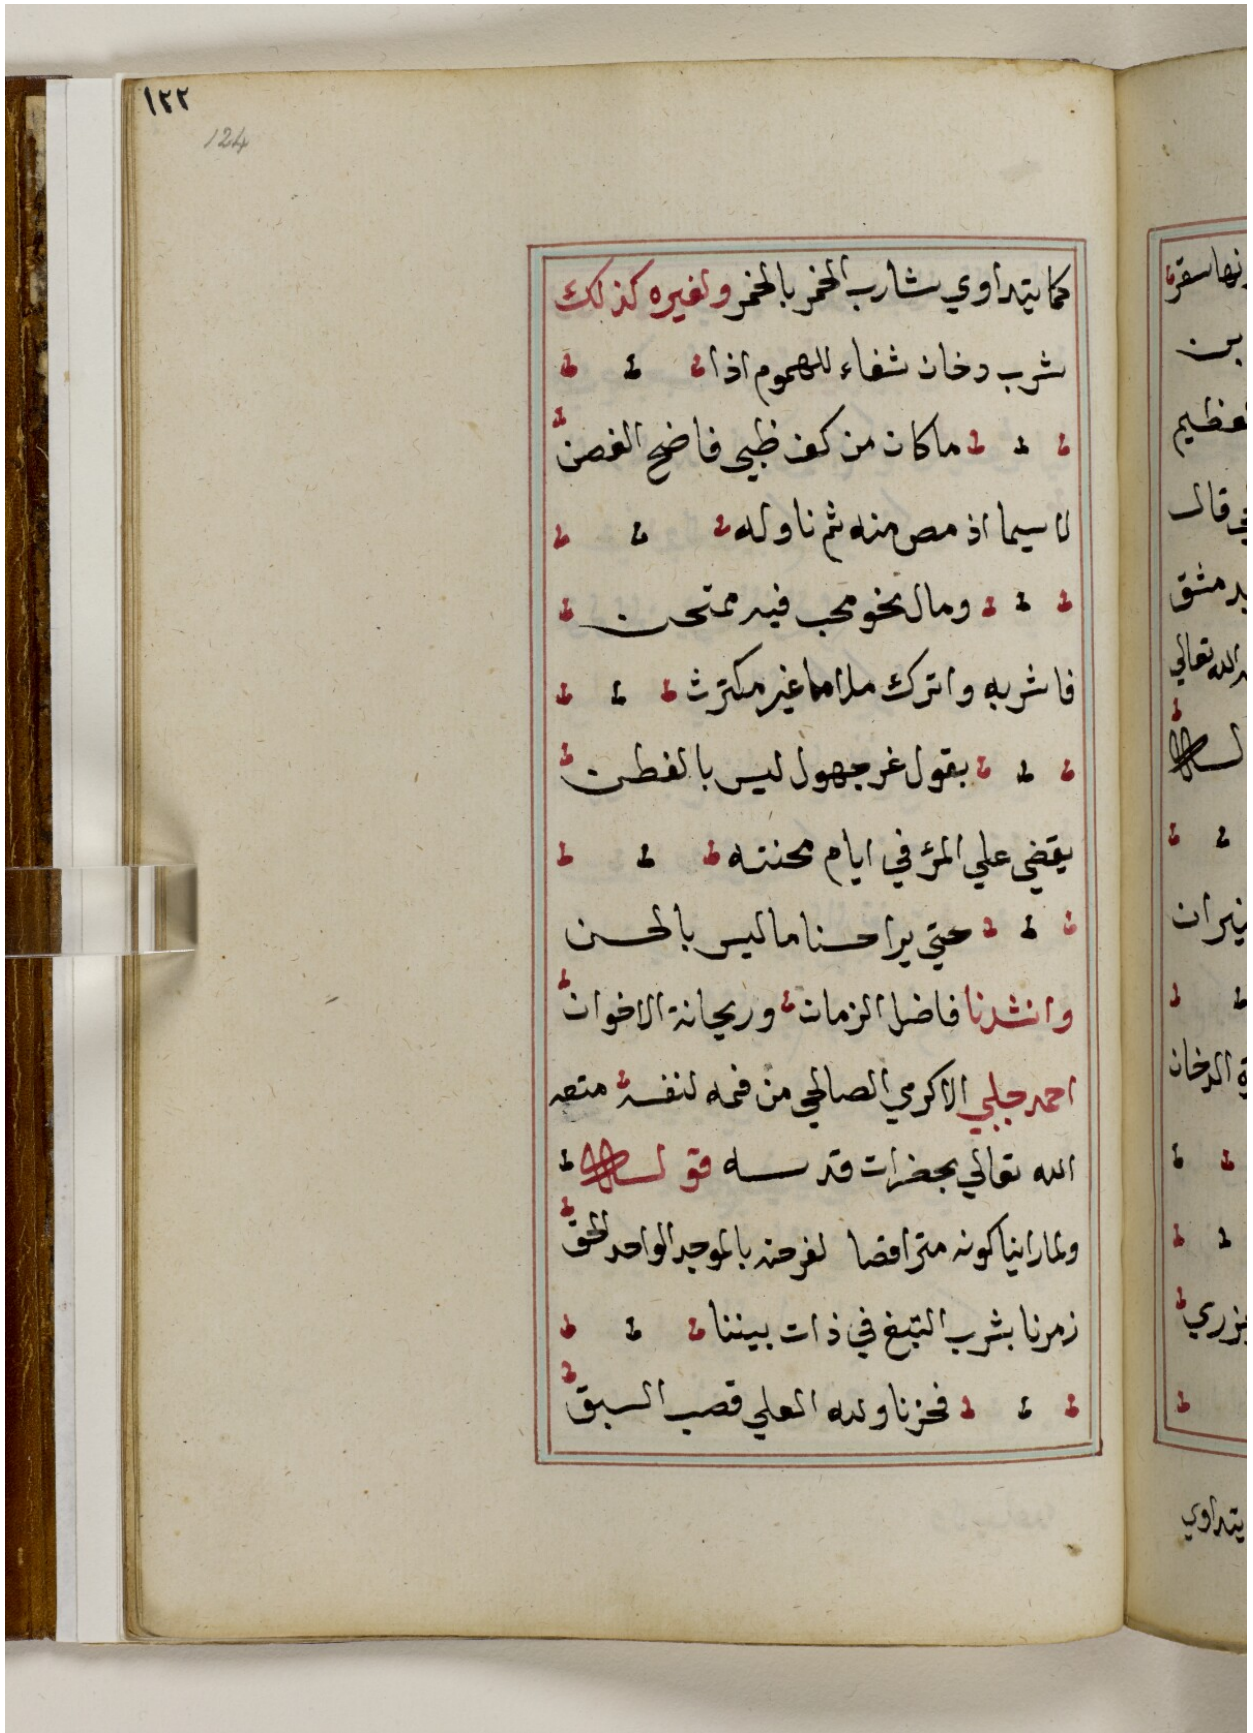 ١٢٢
124
كما يتداوي شارب الخمر بالخمر ولغيره كذلك
شرب دخان شفاء للهموم اذا
ما كان من كف ظبي فاضح الغصن
لا سيما اذ مص منه ثم ناوله
ومال نخو محب فيه ممتحن
فاشربه واترك ملاما غير مكترث
بقول غر جهول ليس بالفطن
يقضي علي المرؤ في ايام محنته
حتي يرا حسنا ما ليس بالحسن
وانشدنا فاضل الزمان وريحانة الاخوان
احمد جلبي الاكرمي الصالحي من فمه لنفسه متعه
الله تعالي بحضرات قدسه قوله
ولما راينا كونه متراقصا لفرحته بالموجد الواحد الحق
زمرنا بشرب التبغ في ذات بيننا
فحزنا ولله العلي قصب السبق
نها سقر
بن
لعظيم
قال
بدمشق
الله تعالي
نيران
الدخان
يتداوي